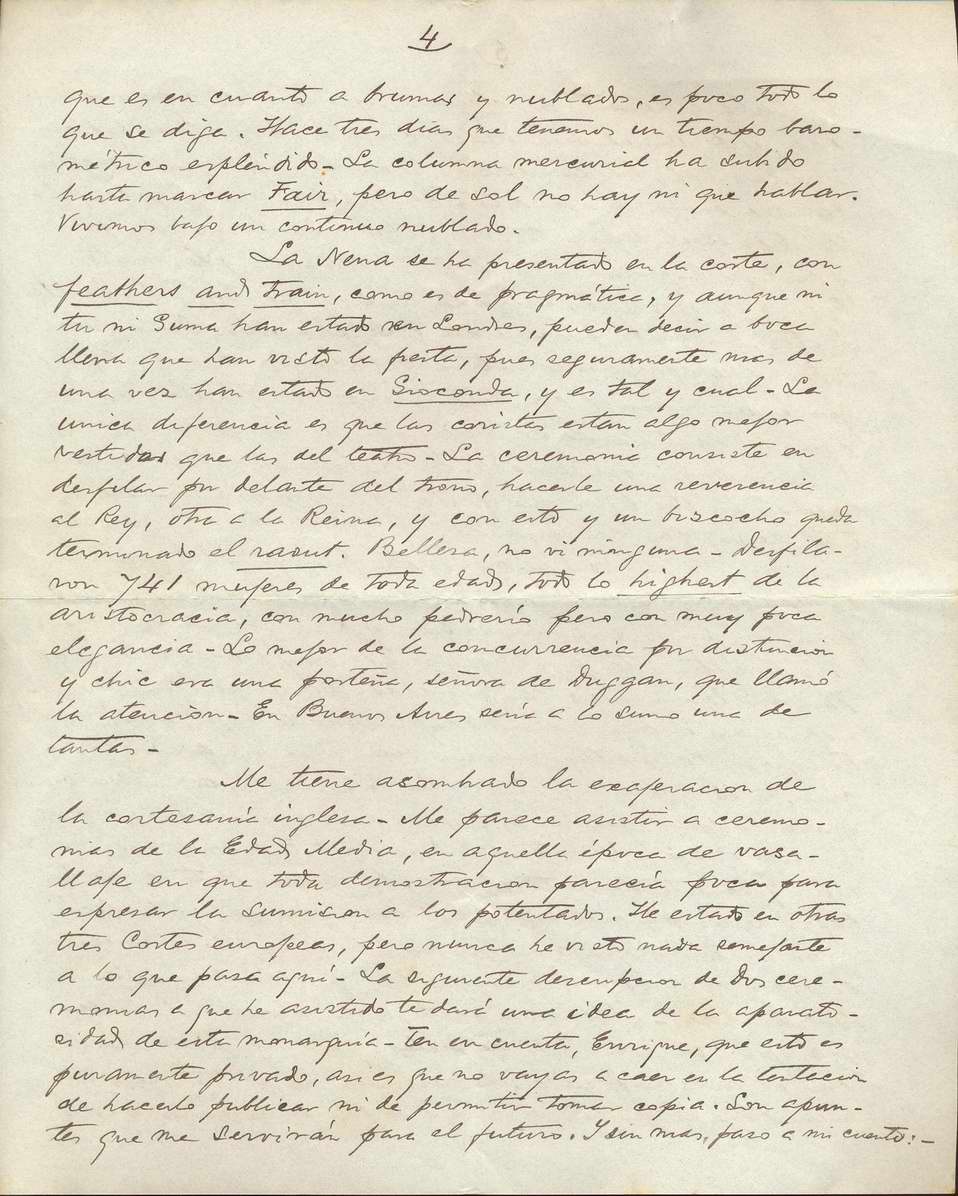 4
que es en cuanto a brumas y nublados, es poco todo lo
que se diga. Hace tres dias que tenemos un tiempo baro-
métrico espléndido - La columna mercurial ha subido
hasta marcar Fair, pero de sol no hay ni que hablar.
Vivimos bajo un continuo nublado.
La Nena se ha presentado en la corte, con
feathers and train, como es de pragmática, y aunque ni
tu ni Guma han estado en Londres, pueden decir a boca
llena que han visto la fiesta, pues seguramente mas de
una vez han estado en Gioconda, y es tal y cual - La
unica diferencia es que las coristas estan algo mejor
vestidas que las del teatro - La ceremonia consiste en
desfilar por delante del trono, hacerle una reverencia
al Rey, otra a la Reina, y con esto y un biscocho queda
terminado el raout. Bellesa, no vi ninguna - Desfila-
ron 741 mujeres de toda edad, todo lo highest de la
aristocracia, con mucho pedrerío pero con muy poca
elegancia - Lo mejor de la concurrencia por distincion
y chic era una porteña, señora de Duggan, que llamó
la atencion - En Buenos Aires seria a lo sumo una de
tantas -
Me tiene asombrado la exajeracion de
la cortesanía inglesa - Me parece asistir a ceremo-
nias de la Edad Media, en aquella época de vasa-
llaje en que toda demostracion parecía poca para
espresar la sumision a los potentados. He estado en otras
tres Cortes europeas, pero nunca he visto nada semejante
a lo que pasa aquí - La siguiente descripcion de dos cere-
monias a que he asistido te dará una idea de la aparato-
sidad de esta monarquía - Ten en cuenta, Enrique, que esto es
puramente privado, asi es que no vayas a caer en la tentacion
de hacerlo publicar ni de permitir tomar copia. Son apun-
tes que me servirán para el futuro. Y sin mas, paso a mi cuento: -